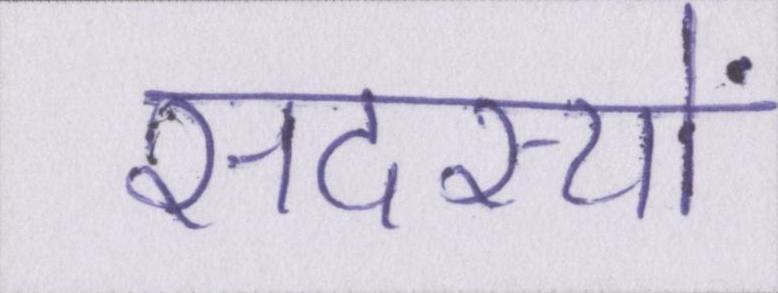 सदस्यों